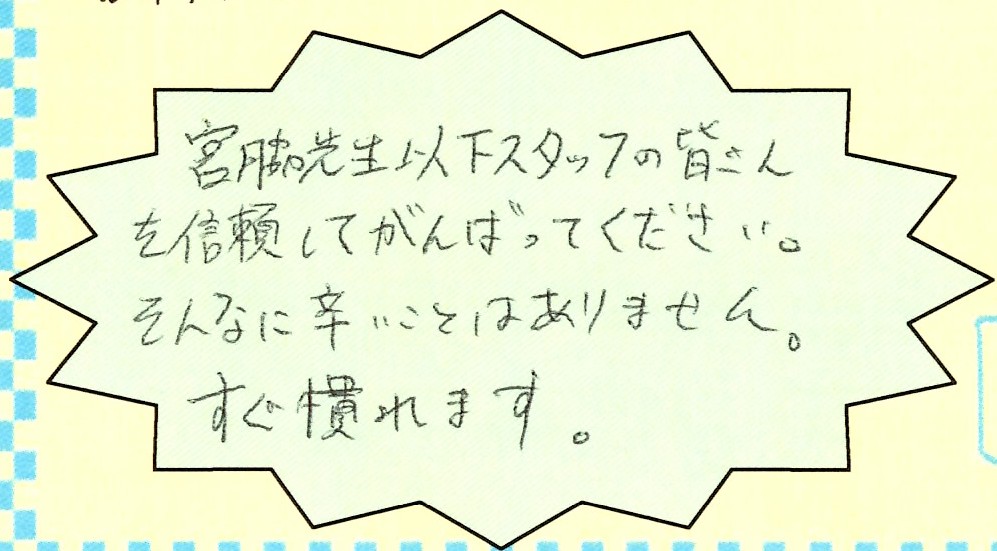 宮脇先生以下スタッフの皆さん
を信頼してがんばってください。
そんなに辛いことはありません。
すぐ慣れます。